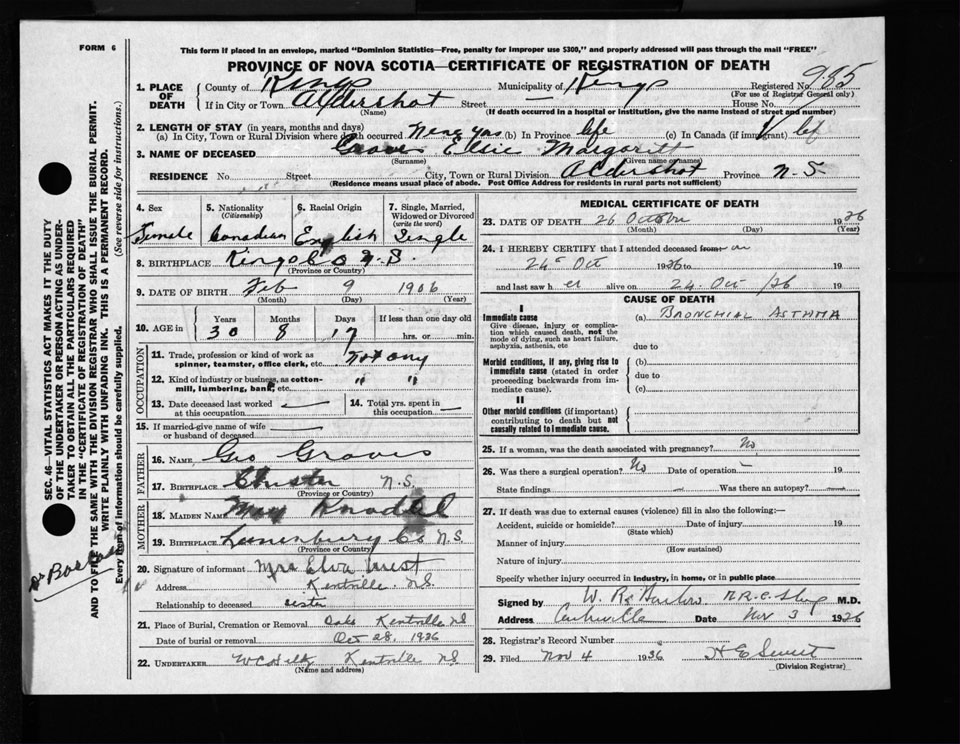 FORM 6
This form if placed in an envelope, marked "Dominion Statistics—Free, penalty for improper use $300," and properly addressed will pass through the mail "FREE"
PROVINCE OF NOVA SCOTIA—CERTIFICATE OF REGISTRATION OF DEATH
1. PLACE OF DEATH County of Kings Municipality of Kings Registered No. 985
(For use of Registrar General only)
If in City or Town Aldershot Street — House No.
(Name) (If death occurred in a hospital or institution, give the name instead of street and number)
2. LENGTH OF STAY (in years, months and days)
(a) In City, Town or Rural Division where death occurred (b) In Province life (c) In Canada (if immigrant)
3. NAME OF DECEASED Graves Ellie Margaritt
(Surname) (Given name or names)
RESIDENCE No. Street City, Town or Rural Division Aldershot Province N.S.
(Residence means usual place of abode. Post Office Address for residents in rural parts not sufficient)
4. Sex 5. Nationality (Citizenship) 6. Racial Origin 7. Single, Married, Widowed or Divorced (write the word)
Female Canadian English Single
8. BIRTHPLACE Kings Co N.S.
(Province or Country)
9. DATE OF BIRTH Feb 9 1906
(Month) (Day) (Year)
10. AGE in Years Months Days If less than one day old
30 8 17 hrs. or min.
OCCUPATION
11. Trade, profession or kind of work as spinner, teamster, office clerk, etc. Not any
12. Kind of industry or business, as cotton-mill, lumbering, bank, etc. " "
13. Date deceased last worked at this occupation — 14. Total yrs. spent in this occupation —
15. If married give name of wife or husband of deceased —
FATHER
16. NAME Geo Graves
17. BIRTHPLACE Chester N.S.
(Province or Country)
MOTHER
18. MAIDEN NAME May
19. BIRTHPLACE Lunenburg Co N.S.
(Province or Country)
20. Signature of informant Mrs Elva
Address Kentville N.S.
Relationship to deceased sister
21. Place of Burial, Cremation or Removal Oaks Kentville NS
Date of burial or removal Oct 28, 1936
22. UNDERTAKER Kentville NS
(Name and address)
MEDICAL CERTIFICATE OF DEATH
23. DATE OF DEATH 26 October 1936
(Month) (Day) (Year)
24. I HEREBY CERTIFY that I attended deceased from on
24 Oct 1936 to 19
and last saw h er alive on 24 Oct /36
CAUSE OF DEATH
I
Immediate cause (a) BRONCHIAL ASTHMA
Give disease, injury or complication which caused death, not the mode of dying, such as heart failure, asphyxia, asthenia, etc
due to
Morbid conditions, if any, giving rise to immediate cause (stated in order proceeding backwards from immediate cause).
(b)
due to
(c)
II
Other morbid conditions (if important) contributing to death but not causally related to immediate cause.
25. If a woman, was the death associated with pregnancy? No
26. Was there a surgical operation? No Date of operation — 19
State findings — Was there an autopsy? —
27. If death was due to external causes (violence) fill in also the following:—
Accident, suicide or homicide? Date of injury 19
(State which)
Manner of injury
(How sustained)
Nature of injury
Specify whether injury occurred in industry, in home, or in public place
Signed by M.D.
Address Date Nov 3 1936
28. Registrar's Record Number
29. Filed Nov 4 1936
(Division Registrar)
SEC. 46—VITAL STATISTICS ACT MAKES IT THE DUTY
OF THE UNDERTAKER OR PERSON ACTING AS UNDER-
TAKER TO OBTAIN ALL THE PARTICULARS REQUIRED
IN THE "CERTIFICATE OF REGISTRATION OF DEATH"
AND TO FILE THE SAME WITH THE DIVISION REGISTRAR WHO SHALL ISSUE THE BURIAL PERMIT.
WRITE PLAINLY WITH UNFADING INK. THIS IS A PERMANENT RECORD.
Every item of information should be carefully supplied. (See reverse side for instructions.)